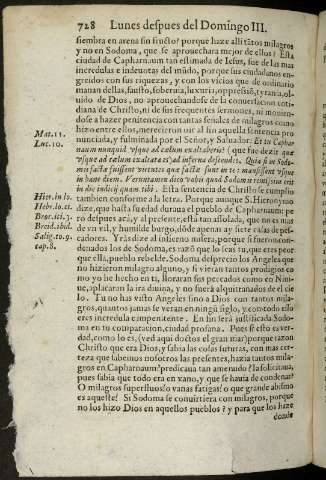 728 Lunes despues del Domingo III.
siembra en arena sin fructo? porque haze alli tãtos milagros
y no en Sodoma, que se aprouechara mejor de ellos? Esta
ciudad de Capharnaum tan estimada de Iesus, fue de las mas
incredulas e indeuotas del mũdo, porque sus ciudadanos en-
greidos con sus riquezas, y con los vicios que de ordinario
manan dellas, fausto, soberuia, luxuria, oppresiõ, tyrania, ol-
uido de Dios, no aprouechandose de la conuersacion coti-
diana de Christo, ni de sus frequentes sermones, ni mouien-
dose a hazer penitencia con tantas señales de milagros como
hizo entre ellos, merecieron oir al fin aquella sentencia pro
Mat. 11.
nunciada, y fulminada por el Señor, y Saluador: Et tu Caphar
Luc. 10.
naum nunquid vsque ad cælum exaltaberis? (que fue dezir que
vsque ad cælum exaltata es) ad infernum descendes. Quia si in Sodo-
mis factæ fuissent virtutes quæ factæ sunt in te: mansissent vsque
in hanc diem. Veruntamen dico vobis quod Sodomæ remissius erit
in die iudicij quam tibi. Esta sentencia de Christo se cumplio
tambien conforme a la letra. Porque aunque S. Hieronymo
Hier. in lo.
dize, que hasta su edad duraua el pueblo de Capharnaum: pe
Hebr. lo. et
ro despues acá, y al presente, està tan assolada, que no es mas
de vn vil, y humilde burgo, dõde apenas ay siete casas de pes-
cadores.
condenados los de Sodoma, es razõ que lo seas tu, que eres peor
que ella, pueblo rebelde. Sodoma desprecio los Angeles que
no hizieron milagro alguno, y si vieran tantos prodigios co
mo yo he hecho en ti, lloraran sus peccados como en Nini-
ue, aplacaran la ira diuina, y no fuera alquitranados de el cie
lo. Tu no has visto Angeles sino a Dios con tantos mila-
gros, quantos jamas se veran en ningũ siglo, y con todo esso
eres incredula e impenitente. En fin sera justificada Sodo-
ma en tu comparacion, ciudad profana. Pues si esto es ver-
dad, como lo es, (ved aqui doctos el gran mar) porque razon
Christo que era Dios, y sabia las cosas futuras, con mas cer-
teza que sabemos nosotros las presentes, hazia tantos mila-
gros en Capharnaum? predicaua tan amenudo? la solicitaua,
pues sabia que todo era en vano, y que se hauia de condenar?
O milagros superfluos! o vanas fatigas! o que grande abismo
es aqueste! Si Sodoma se conuirtiera con milagros, porque
no los hizo Dios en aquellos pueblos? y para que los haze
donde